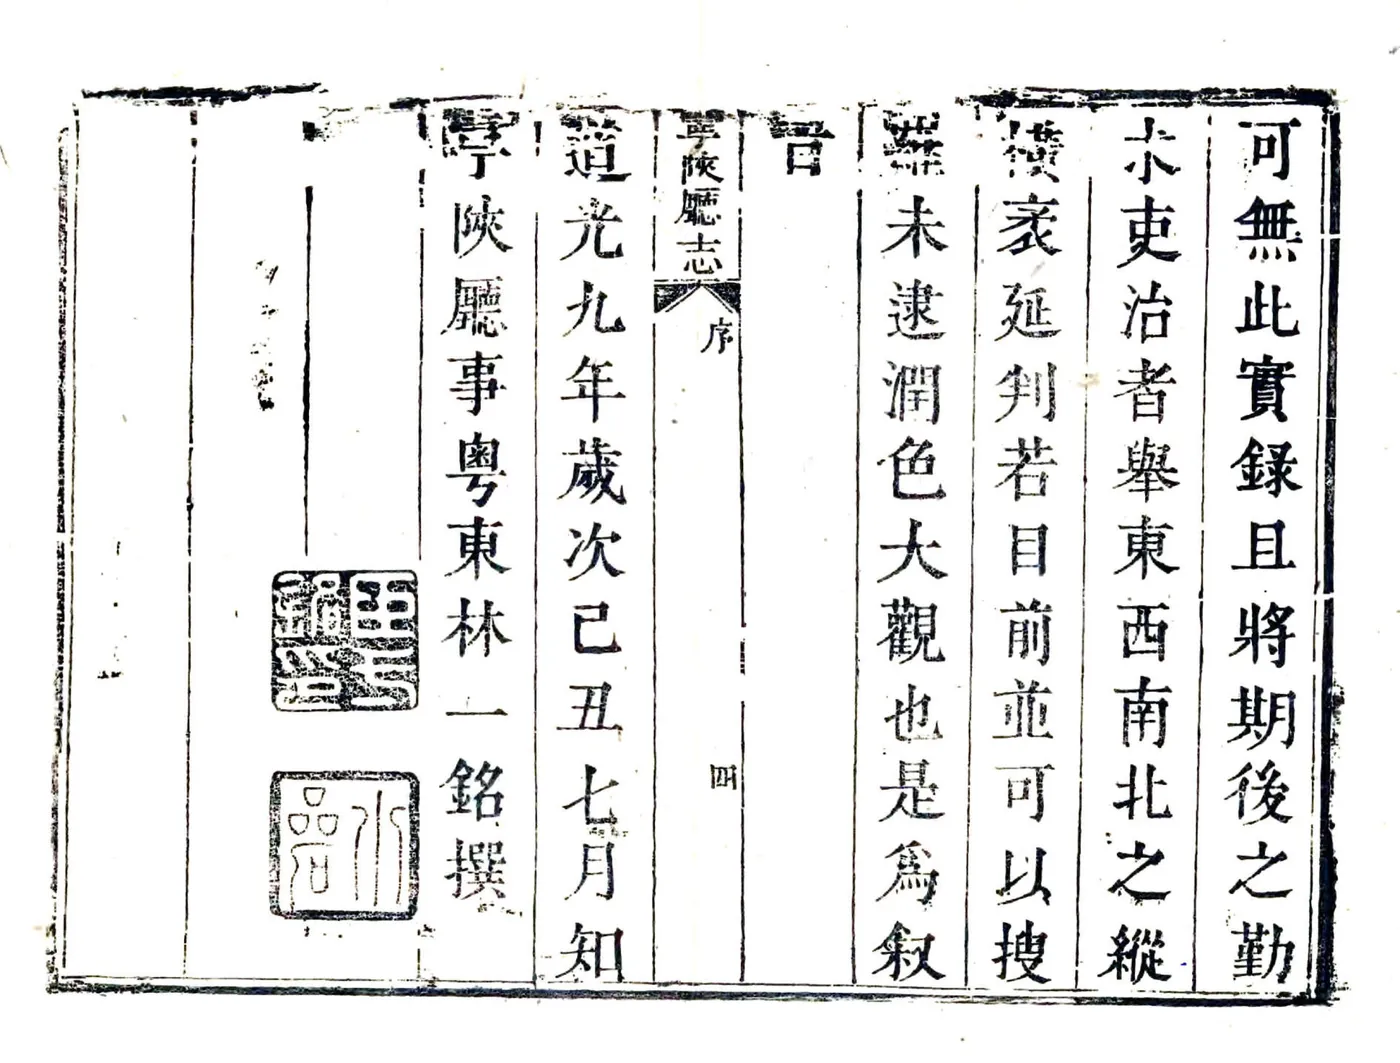 可無此實錄且將期後之勤
求吏治者舉東西南北之縱
橫袤延判若目前並可以搜
羅未逮潤色大觀也是爲叙
旹
寧陝廳志
序
四
道光九年歲次己丑七月知
寧陝廳事粵東林一銘撰